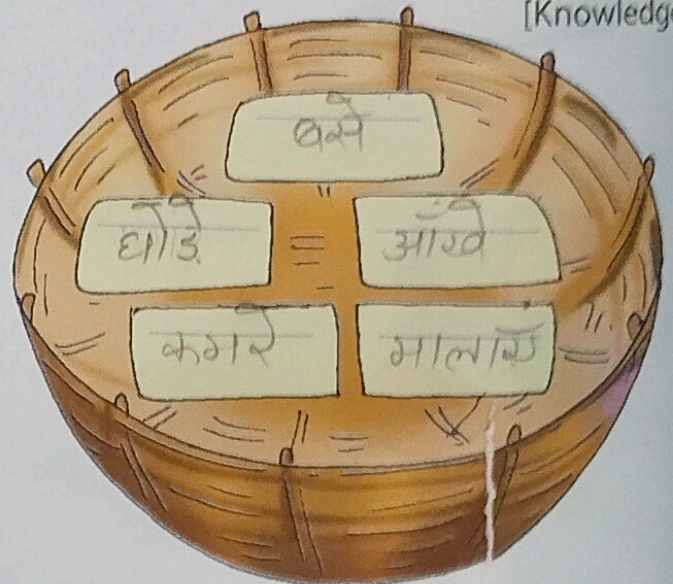 [Knowledge
बसे
घोडे़ आँखे
कमरे मालाएं